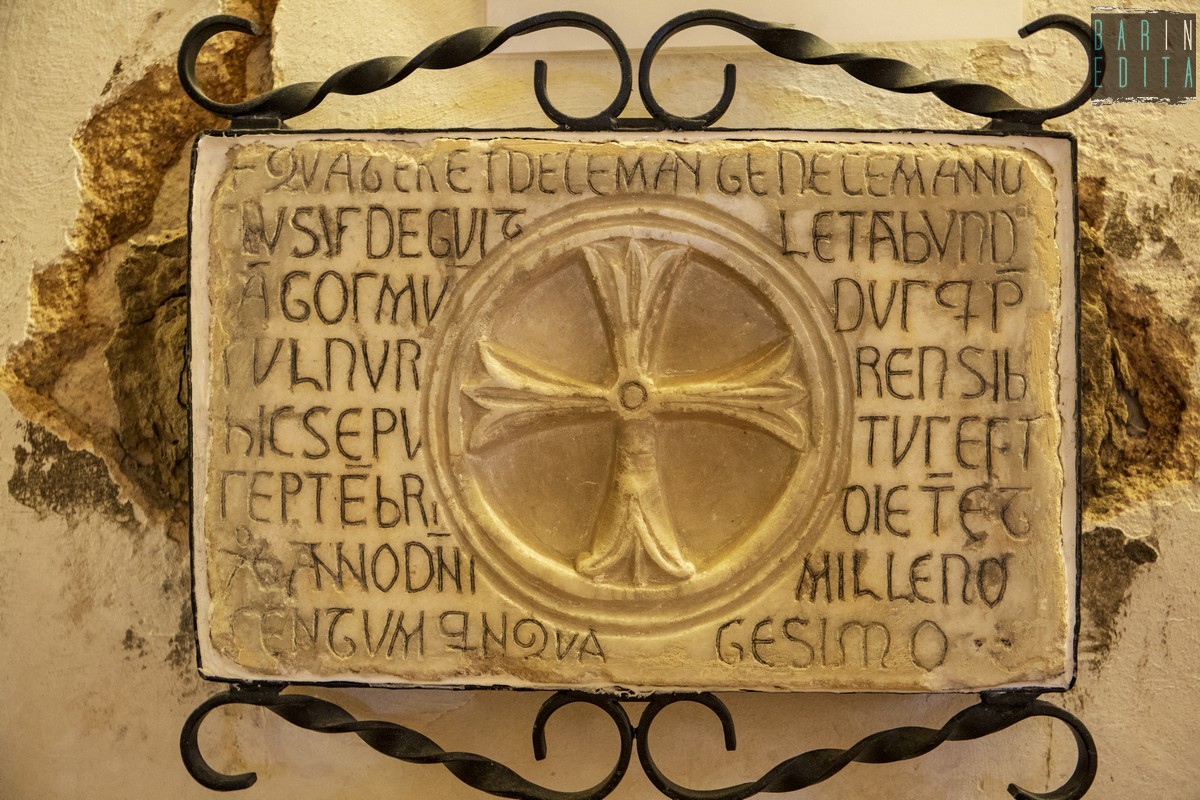 BARIN
EDITA
QVAGERETDELEMANGENELEMANNU
NVSIFDEGVIT LETABVND
AGOΓMV DVΓꟼP
VVLNVR RENSIB
hICSEPV TVΓEFT
ΓEPTEBRI DIETET
ANNODNI MILLENO
CENTVM QNQVA GESIMO